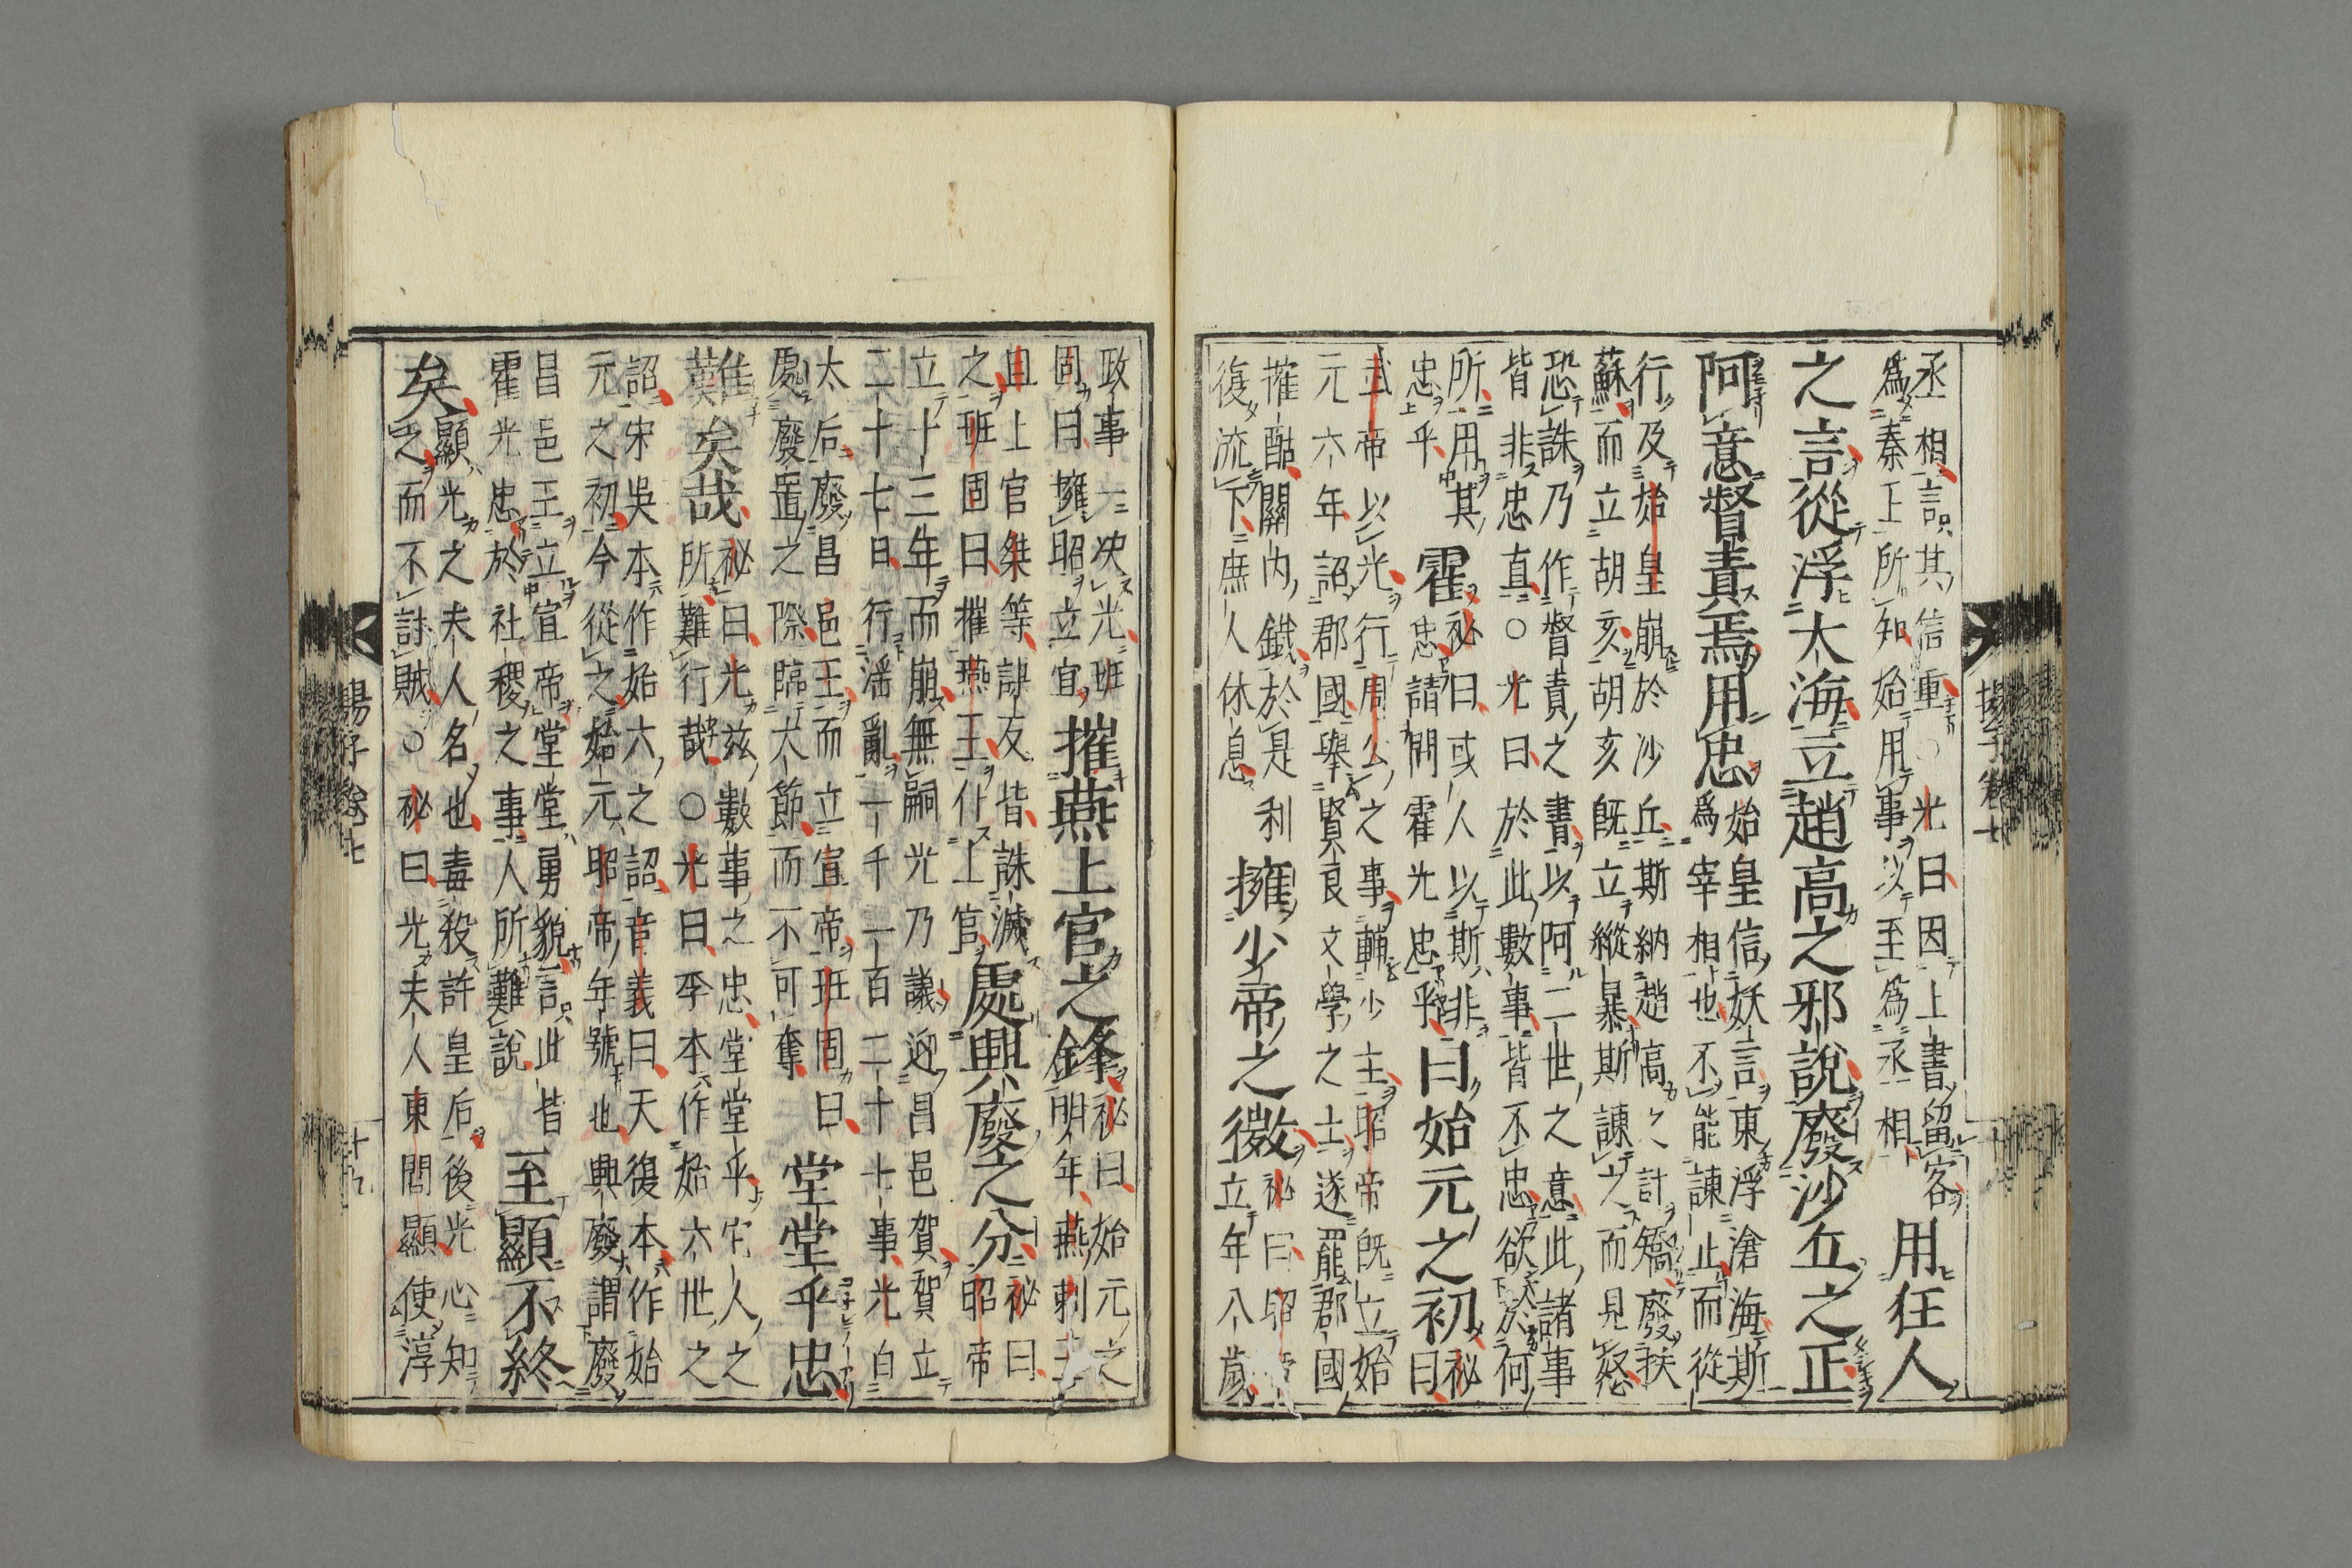 丞相言其信重○光曰因上書留客
爲秦王所知始用事以至爲丞相
用狂人
之言從浮大海立趙高之邪說廢沙丘之正
阿意督責焉用忠
始皇信妖言東浮滄海斯
爲宰相也不能諫止而從
行及始皇崩於沙丘斯納趙高之計矯廢扶
蘇而立胡亥胡亥既立縱暴斯諫之而見怒
恐誅乃作督責之書以阿二世之意此諸事
皆非忠直○光曰於此數事皆不忠欲於何
所用其
忠乎
霍
祕曰或人以斯非
忠請問霍光忠乎
曰始元之初
祕
曰
武帝以光行周公之事輔少主昭帝既立始
元六年詔郡國舉賢良文學之士遂罷郡國
搉酤關內鐵於是利
復流下庶人休息
擁少帝之微
祕曰昭帝
立年八歲
楊子卷七
政事一决光班
固曰擁昭立宣
摧燕上官之鋒
祕曰始元之
明年燕剌王
旦上官桀等謀反皆誅滅
之班固曰摧燕王仆上官
處興廢之分
祕曰
昭帝
立十三年而崩無嗣光乃議迎昌邑賀賀立
二十七日行滛亂一千一百二十七事光白
太后廢昌邑王而立宣帝班固曰
處廢置之際臨大節而不可奪
堂堂乎忠
難矣哉
祕曰光兹數事之忠堂堂乎宅人之
所難行哉○光曰李本作始六世之
詔宋吳本作始六之詔音義曰天復本作始
元之初今從之始元昭帝年號也興廢謂廢
昌邑王立宣帝堂堂勇貌言此皆
霍光忠於社稷之事人所難說
至顯不終
矣
顯光之夫人名也毒殺許皇后後光心知
之而不討賊○祕曰光夫人東閭顯使淳
楊子卷七
十九